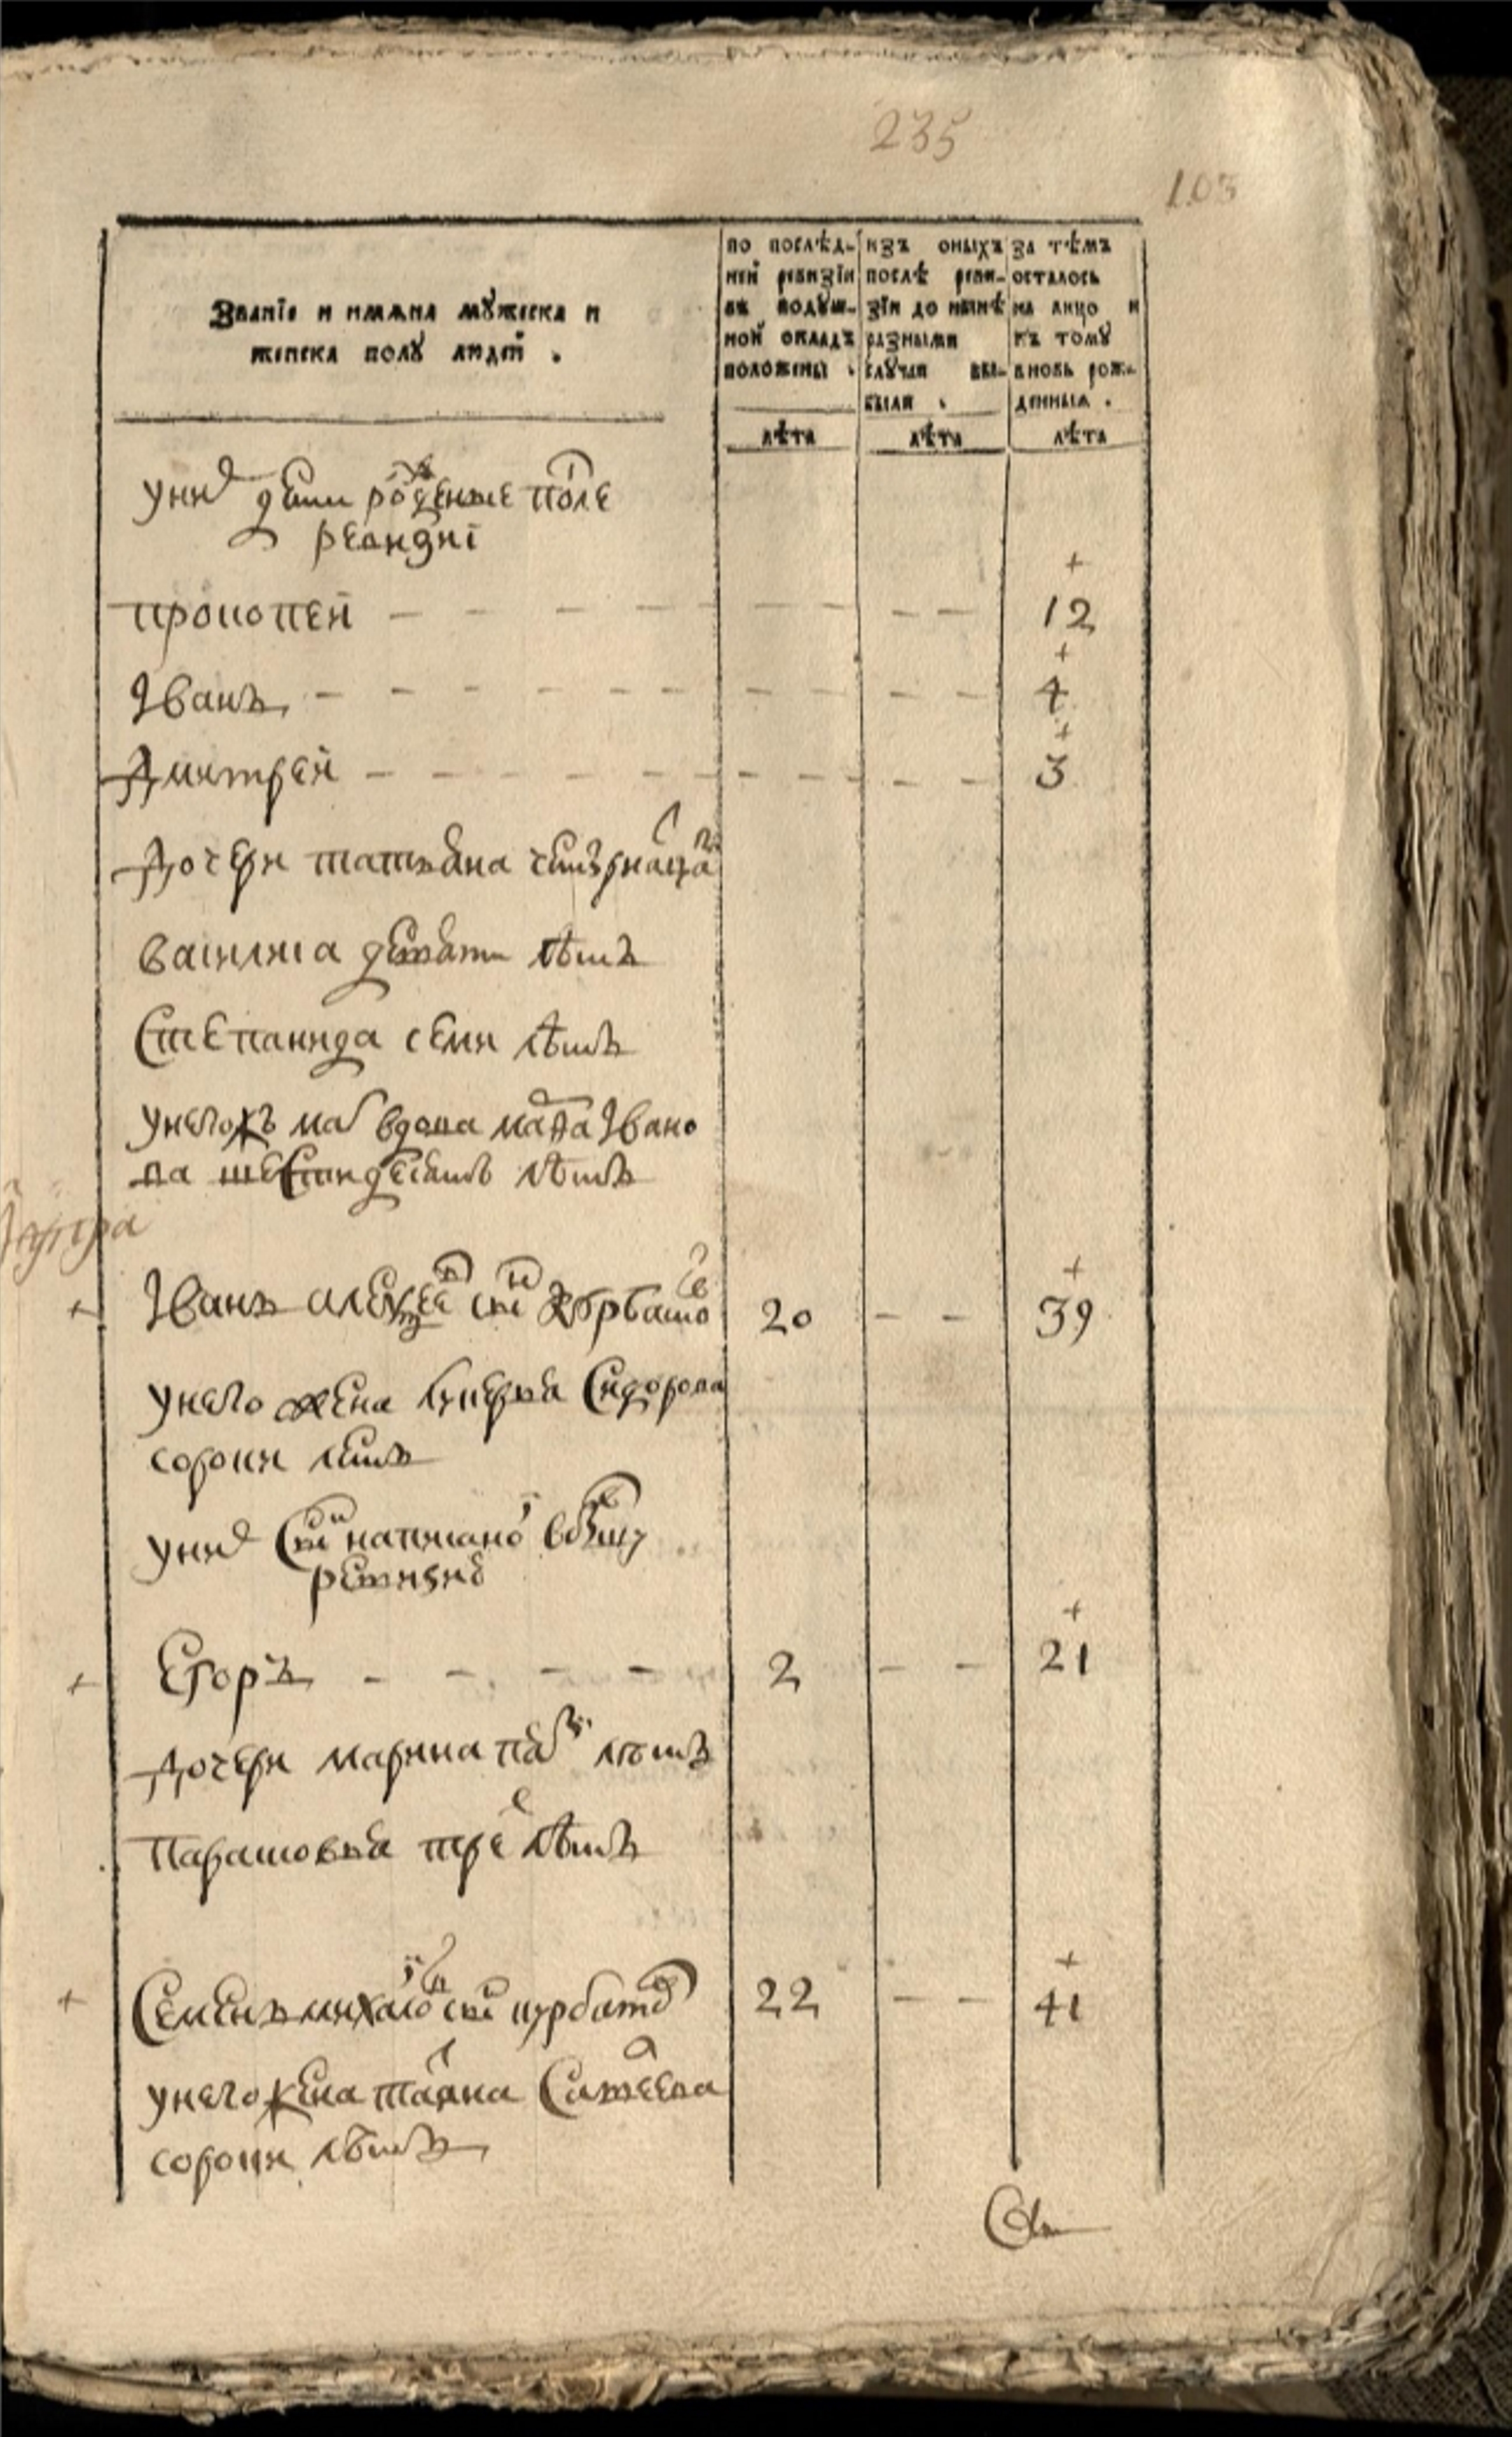 235
103
Званїе и имѧна мꙋжеска и
женска полꙋ людей .
по послѣд-
ней ревизїи
въ подꙋш-
ной окладъ
положены .
лѣта
изъ оныхъ
послѣ реви-
зїи до нынѣ
разными
слꙋчаи вы-
были .
лѣта
за тѣмъ
осталось
на лицо и
къ тому
вновь рож-
денныхъ .
лѣта
унихъ дети рожденые после
ревизиі
прокопей - - - - - - - 12
Іванъ - - - - - - - 4
Дмитрей - - - - - - - 3
Дочери татьяна
василиса девяти лѣтъ
Степанида семи лѣтъ
унегожъ мать вдова Ивано
ва шестидесятъ лѣтъ
Іванъ алексеевъ снъ курбатовъ 20 - - 39
унего жена лукерья Сидорова
сороки летъ
унихъ снъ написаной
ревизиі
Егоръ - - - - 2 - - 21
Дочери марина лѣтъ
парасковья трех лѣтъ
Семенъ михайловъ снъ курбатовъ 22 - - 41
унего жена
сороки лѣтъ